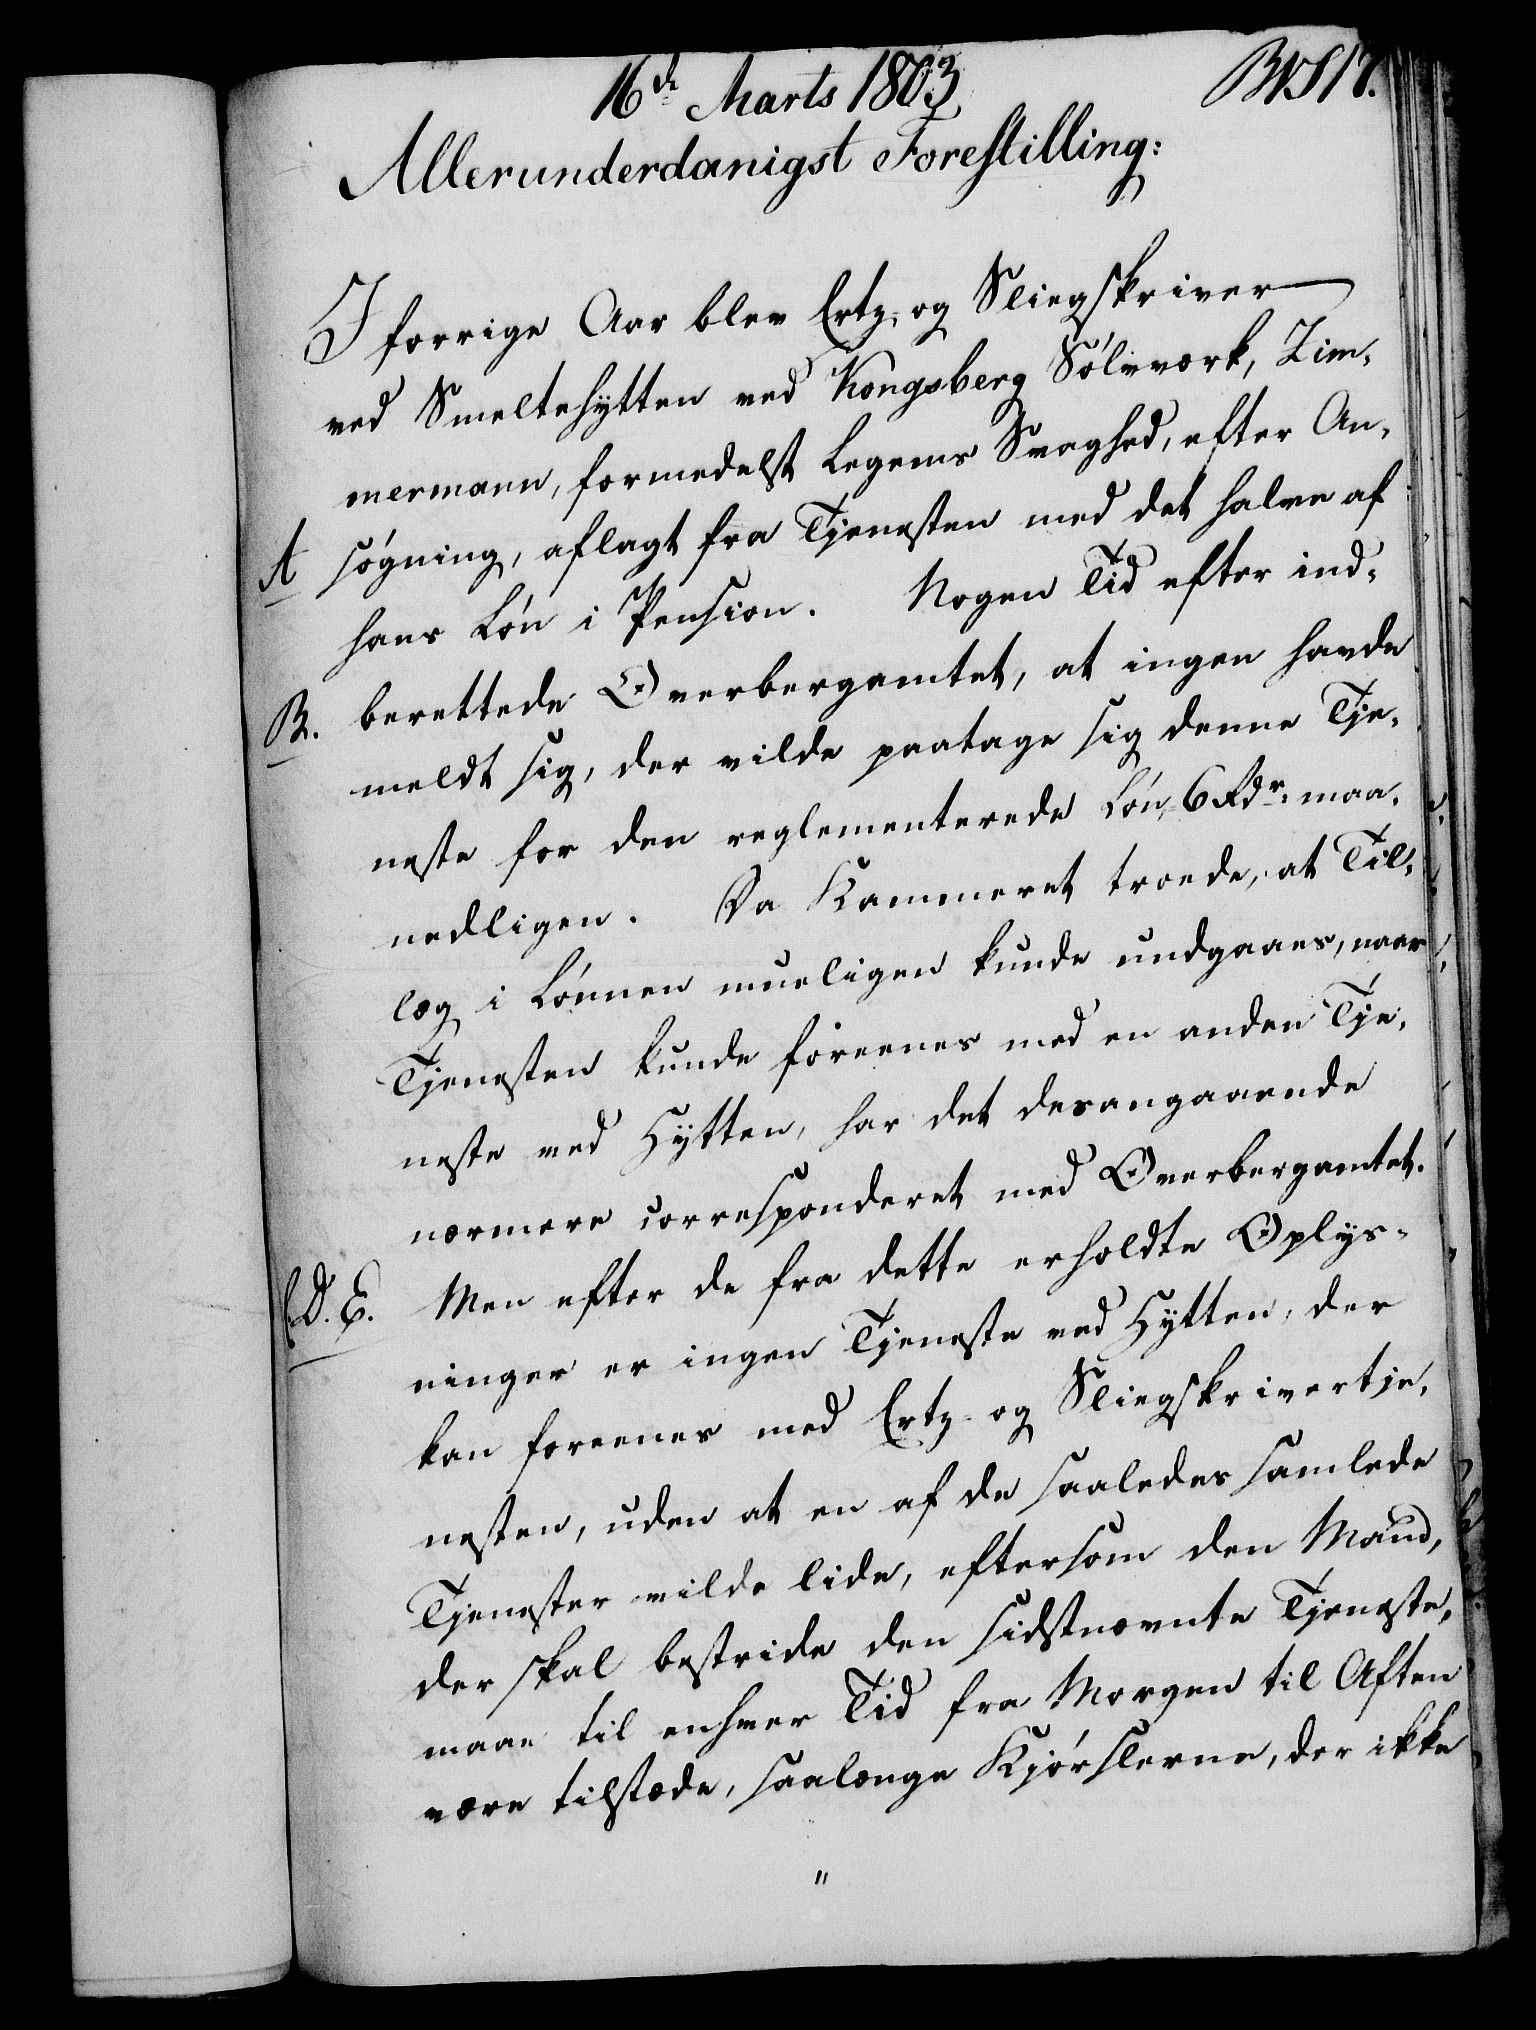 16de Marts 1803
Allerunderdanigst Forestilling:
I forrige Aar blev Ertz- og Sliegskriver
ved Smeltehytten ved Kongsberg Sölvværk, Zim-
mermann, formedelst Legems Svaghed, efter An-
A søgning, aflagt fra Tjenesten med det halve af
hans Lön i Pension. Nogen Tid efter ind-
B. berettede Overbergamtet, at ingen havde
meldt sig, der vilde paatage sig denne Tje-
neste for den reglementerede Lön, 6 Rdr. maa-
nedligen. Da Kammeret troede, at Til-
læg i Lönnen mueligen kunde undgaaes, naar
Tjenesten kunde foreenes med en anden Tje-
neste ved Hytten, har det desangaaende
nærmere corresponderet med Overbergamtet.
C. D. E. Men efter de fra dette erholdte Oplys-
ninger er ingen Tjeneste ved Hytten, der
kan foreenes med Ertz- og Sliegskrivertje-
nesten, uden at en af de saaledes samlede
Tjenester vilde lide, eftersom den Mand,
der skal bestride den sidstnævnte Tjeneste,
maae til enhver Tid fra Morgen til Aften
være tilstæde, saalænge Kjörslerne, der ikke
"